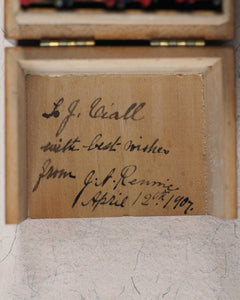 to J. Viall
with best wishes
from J. A. Rennie
April 12th 1907.